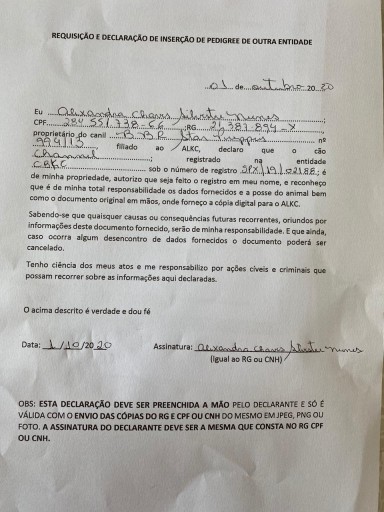 REQUISIÇÃO E DECLARAÇÃO DE INSERÇÃO DE PEDIGREE DE OUTRA ENTIDADE
01 de outubro 20 20
Eu Alexandra Chaves Nunes;
CPF 284 551 738-66 ;RG 21.587.894-X,
proprietário do canil BBR Star nº
994/13, filiado ao ALKC, declaro que o cão
Channel; registrado na entidade
CBKC sob o número de registro SPX/19/02188; é
de minha propriedade, autorizo que seja feito o registro em meu nome, e reconheço
que é de minha total responsabilidade os dados fornecidos e a posse do animal bem
como o documento original em mãos, onde forneço a cópia digital para o ALKC.
Sabendo-se que quaisquer causas ou consequências futuras recorrentes, oriundos por
informações deste documento fornecido, serão de minha responsabilidade. E que ainda,
caso ocorra algum desencontro de dados fornecidos o documento poderá ser
cancelado.
Tenho ciência dos meus atos e me responsabilizo por ações cíveis e criminais que
possam recorrer sobre as informações aqui declaradas.
O acima descrito é verdade e dou fé
Data: 1/10/20 20 Assinatura: Alexandra Chaves Nunes
(Igual ao RG ou CNH)
OBS: ESTA DECLARAÇÃO DEVE SER PREENCHIDA A MÃO PELO DECLARANTE E SÓ É
VÁLIDA COM O ENVIO DAS CÓPIAS DO RG E CPF OU CNH DO MESMO EM JPEG, PNG OU
FOTO. A ASSINATURA DO DECLARANTE DEVE SER A MESMA QUE CONSTA NO RG CPF
OU CNH.